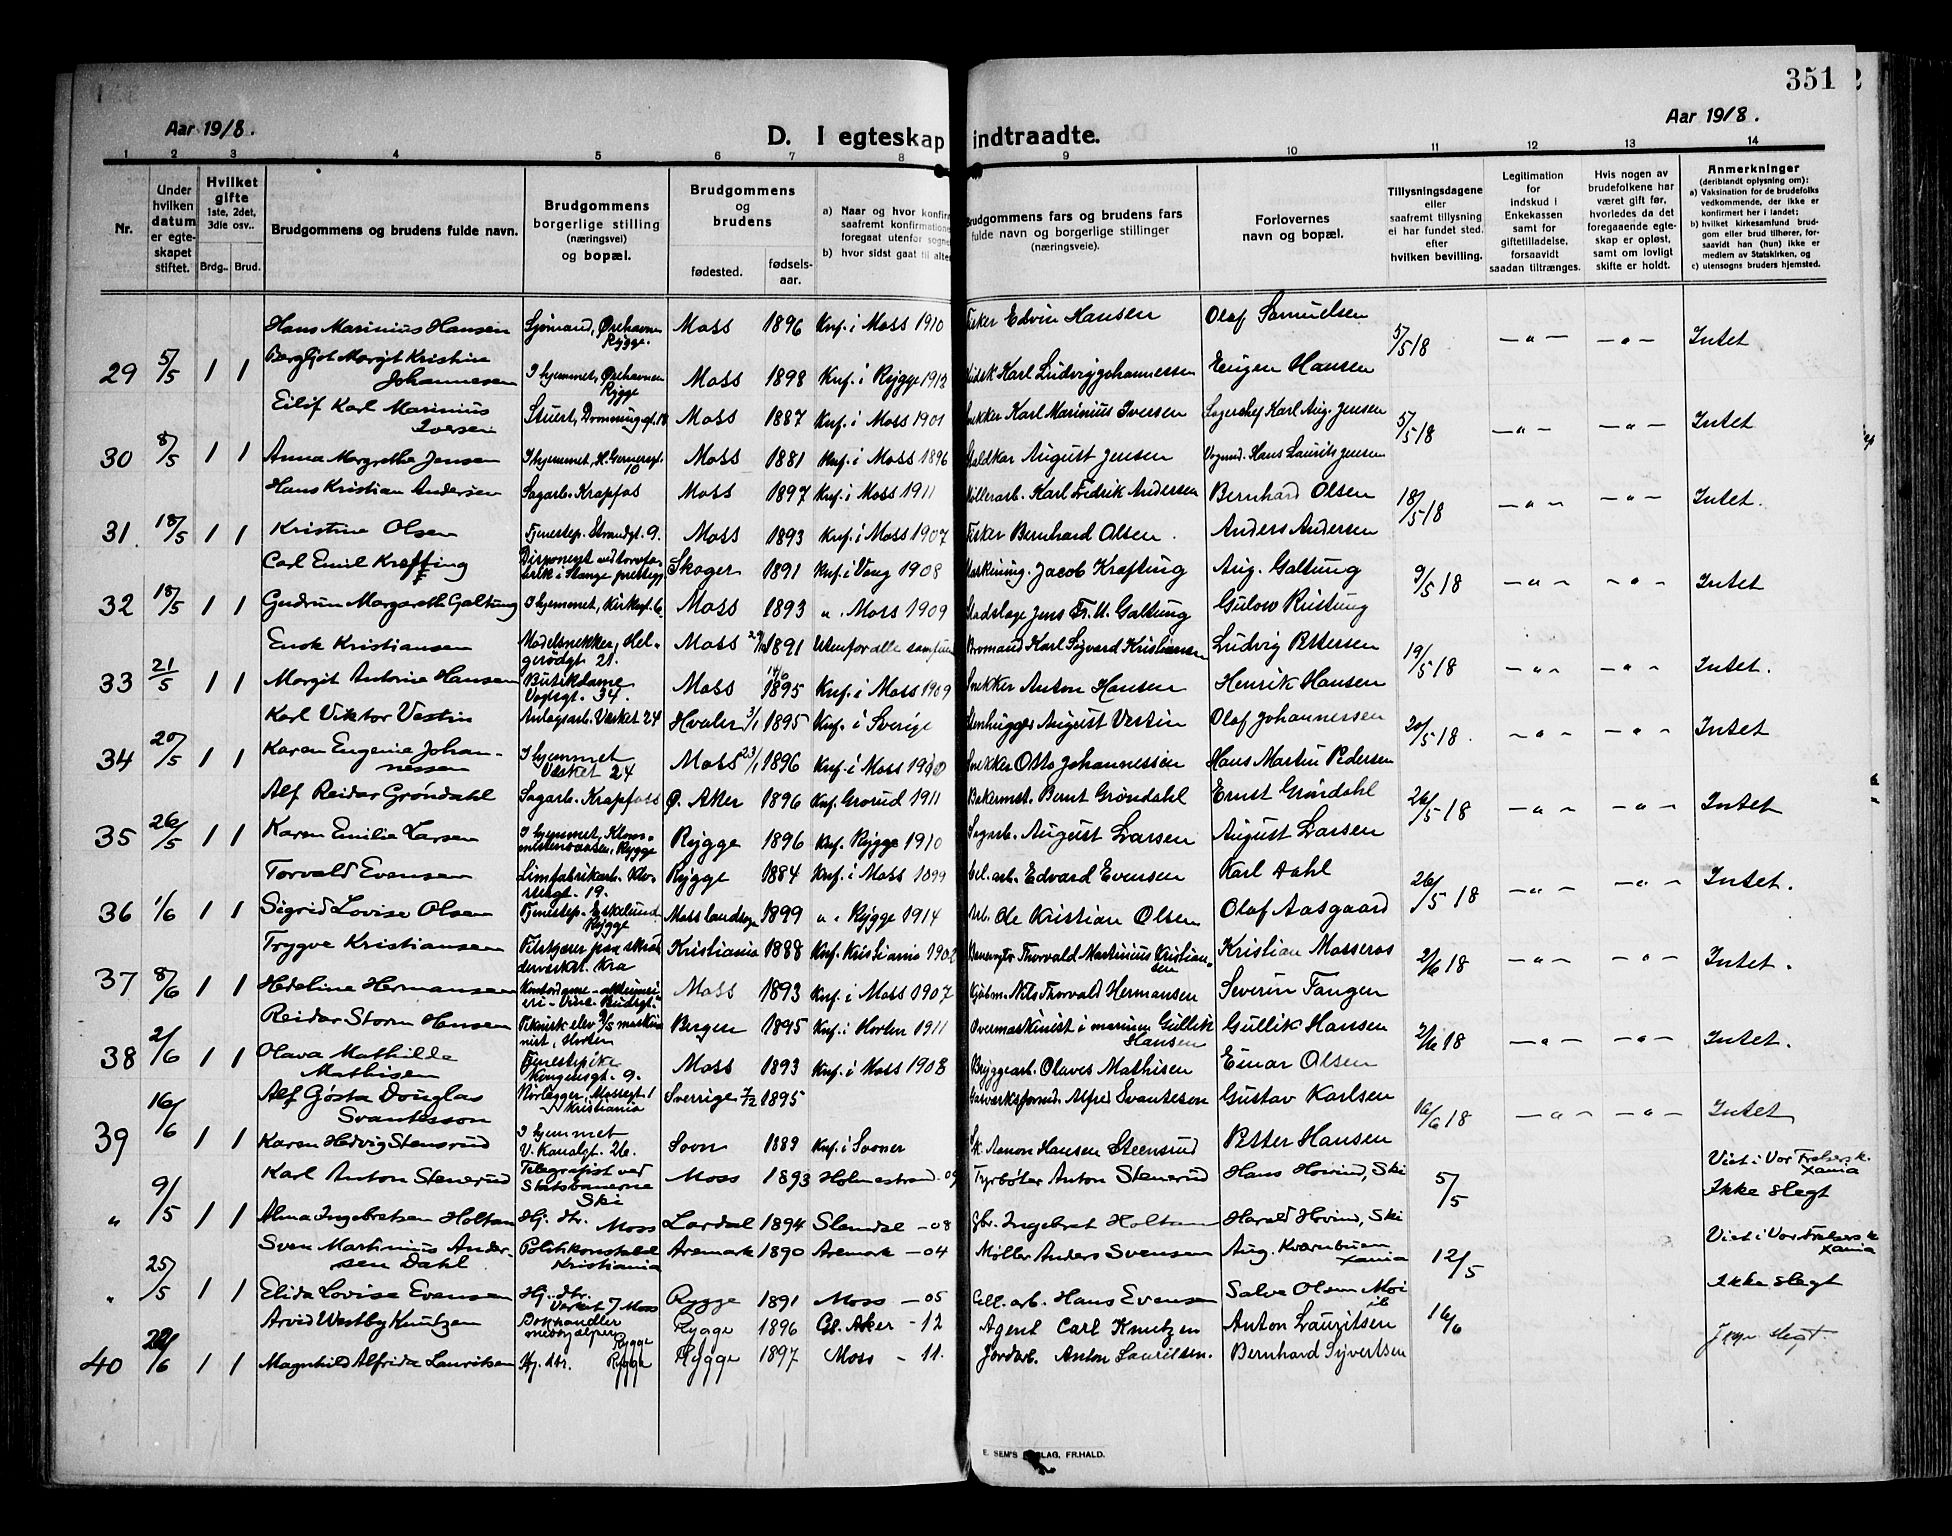 351
Aar 1918. Aar 1918.
D. I egteskap indtraadte.
1 2 3 4 5 6 7 8 9 10 11 12 13 14
Nr.
Under hvilken datum er egteskapet stiftet.
Hvilket gifte 1ste, 2det, 3die osv..
Brdg.. Brud.
Brudgommens og brudens fulde navn.
Brudgommens borgerlige stilling (næringsvei) og bopæl.
Brudgommens og brudens
fødested. fødsels-aar.
a) Naar og hvor konfir
saafremt konfirmatione
foregaat utenfor sogne
b) hvor sidst gaat til alter
Brudgommens fars og brudens fars fulde navn og borgerlige stillinger (næringsveie).
Forlovernes navn og bopæl.
Tillysningsdagene eller saafremt tillysning ei har fundet sted. efter hvilken bevilling.
Legitimation for indskud i Enkekassen samt for giftetilladelse, forsaavidt saadan tiltrænges.
Hvis nogen av brudefolkene har været gift før, hvorledes da det foregaaende egteskap er opløst, samt om lovligt skifte er holdt.
Anmerkninger (deriblandt oplysning om):
a) Vaksination for de brudefolks vedkommende, der ikke er konfirmert her i landet;
b) hvilket kirkesamfund brudgom eller brud tilhører, forsaavidt han (hun) ikke er medlem av Statskirken, og
c) utensogns bruders hjemsted.
Hans Marinius Hansen Sjømand, Ørehavnen Rygge. Moss 1896 Knf. i Moss 1910 Fisker Edvin Hansen Olaf Samuelsen 5/5 18 — „ — — „ — Intet
29 5/5 1 1 Bergljot Margit Kristine Johannesen I hjemmet, Ørehavnen Rygge Moss 1898 Knf. i Rygge 1912 Karl Ludvig Johannessen Eugen Hansen
Eilif Karl Marinius Iversen Stuert, Dronningsgt. 18 Moss 1887 Knf. i Moss 1901 Karl Marinius Iversen Lagerchef Karl Aug. Jensen 5/5 18 — „ — — „ — Intet
30 8/5 1 1 Anna Margrethe Jensen I hjemmet, H. Gernersgt. 10 Moss 1881 Knf. i Moss 1896 August Jensen Vognmd. Hans Laurits Jensen
Hans Kristian Andersen Sagarb. Krapfos Moss 1897 Knf. i Moss 1911 Møllerarb. Karl Fredrik Andersen Bernhard Olsen 18/5 18 — „ — — „ — Intet.
31. 18/5 1 1 Kristine Olsen Tjenestep. Strandgt. 9. Moss 1893 Knf. i Moss 1907 Fisker Bernhard Olsen. Anders Andersen
Carl Emil Krafting Disponent ved torvfabrik i Stange prestegj. Skoger 1891 Knf. i Vang 1908 Jacob Krafting Aug. Galtung 9/5 18 — „ — — „ — Intet
32 18/5 1 1 Gudrun Margareth Galtung I hjemmet, Kirkegt. 6 Moss 1893 „. Moss 1909 Stadslæge Jens Fr. U. Galtung Gülow Ristung
Enok Kristiansen Modelsnekker, Helgerødgt. 21. Moss 1891 Utenfor alle samfund Bromand Karl Sigvard Kristiansen Ludvig Pettersen 19/5 18 — „ — — „ — Intet.
33 21/5 1 1 Margit Antonie Hansen Butikdame Vogtsgt. 34. Moss 1895 Knf. i Moss 1909 Snekker Anton Hansen Henrik Hansen
Karl Viktor Vestin Anlægsarb. Værket 24 Hvaler 3/1 1895 Knf. i Sverige Stenhugger August Vestin Olaf Johannessen 20/5 18. — „ — — „ — Intet
34 20/5 1 1 Karen Eugenie Johannessen I hjemmet Værket 24 Moss 23/1 1896 Knf. i Moss 1910 Snekker Otto Johannessen Hans Martin Pedersen
Alf Reidar Grøndahl Sagarb. Krapfoss Ø. Aker 1896 Knf. Grorud 1911 Bakermst. Bernt Grøndahl Ernst Grøndahl 26/5 18 — „ — — „ — Intet
35 26/5 1 1 Karen Emilie Larsen I hjemmet, Rygge Rygge 1896 Knf. Rygge 1910 Sagarb. August Larsen August Larsen
Torvald Evensen Limfabrikarb. 19. Rygge 1884 Knf. i Moss 1899 Cel. arb. Edvard Evensen Karl Dahl 26/5 18 — „ — — „ — Intet.
36 1/6 1 1 Sigrid Lovise Olsen Tjenestep. Eskelund Rygge Moss landsogn 1899 „. Rygge 1914 Arb. Ole Kristian Olsen Olaf Aasgaard
Trygve Kristiansen Kra Kristiania 1888 Knf. Kristiania 1902 Thorvald Martinius Kristiansen Kristian Mosseros 2/6 18 — „ — — „ — Intet.
37 8/6 1 1 Hedeline Hermansen Moss 1893 Knf. i Moss 1907 Kjøbm. Nils Thorvald Hermansen Severin Tangen
Reidar Storm Hansen Teknisk elev Horten Bergen 1895 Knf. i Horten 1911 Overmaskinist i marinen Gullik Hansen Gullik Hansen 2/6 18 — „ — — „ — Intet.
38 2/6 1 1 Olava Mathilde Mathisen Tjenestepike Kongensgt. 9. Moss 1893 Knf. i Moss 1908 Bryggearb. Olaves Mathisen Einar Olsen
Alf Gösta Douglas Svantesson Rørlægger, Mossegt. 1 Kristiania Sverrige 7/2 1895 Alfred Svantesen Gustav Karlsen 16/6 18 — „ — — „ — Intet
39 16/6 1 1 Karen Hedvig Stensrud I hjemmet V. Kanalgt. 26. Soon 1889 Knf. i Sooner Anton Hansen Steensrud Petter Hansen
Karl Anton Stenerud Telegrafist ved Statsbanerne Ski Moss 1893 Holmestrand -09 Fyrbøter Anton Stenerud Hans Hovind, Ski 5/5 Viet i Vor Frelsers k. Xania Ikke slegt
„ 9/5 1 1 Alma Ingebretsen Holtan Hj. dtr. Moss Lardal 1894 -08 Gbr. Ingebret Holtan Harald Hovind, Ski
Sven Martinius Andersen Dahl Politikonstabel Kristiania Aremark 1890 Aremark -04 Møller Anders Svensen Aug. Kværnbuen Xania 12/5 Viet i Vor Frelsers k Xania Ikke slegt
„ 25/5 1 1 Elida Lovise Evensen Hj. dtr. Værket 7 Moss Rygge 1891 Moss -05 Cell. arb. Hans Evensen Salve Olsen Moi
Arvid Westby Knutzen Bokhandler medhjælper Rygge Rygge 1896 Gl. Aker -12 Agent Carl Knutzen Anton Lauritsen 16/6 slegt.
40 22/6 1 1 Magnhild Alfrida Lauritsen Hj. dtr. Rygge Rygge 1897 Moss - 11. Jordarb. Anton Lauritsen. Bernhard Syvertsen
E. SEM'S FORLAG, FR.HALD.